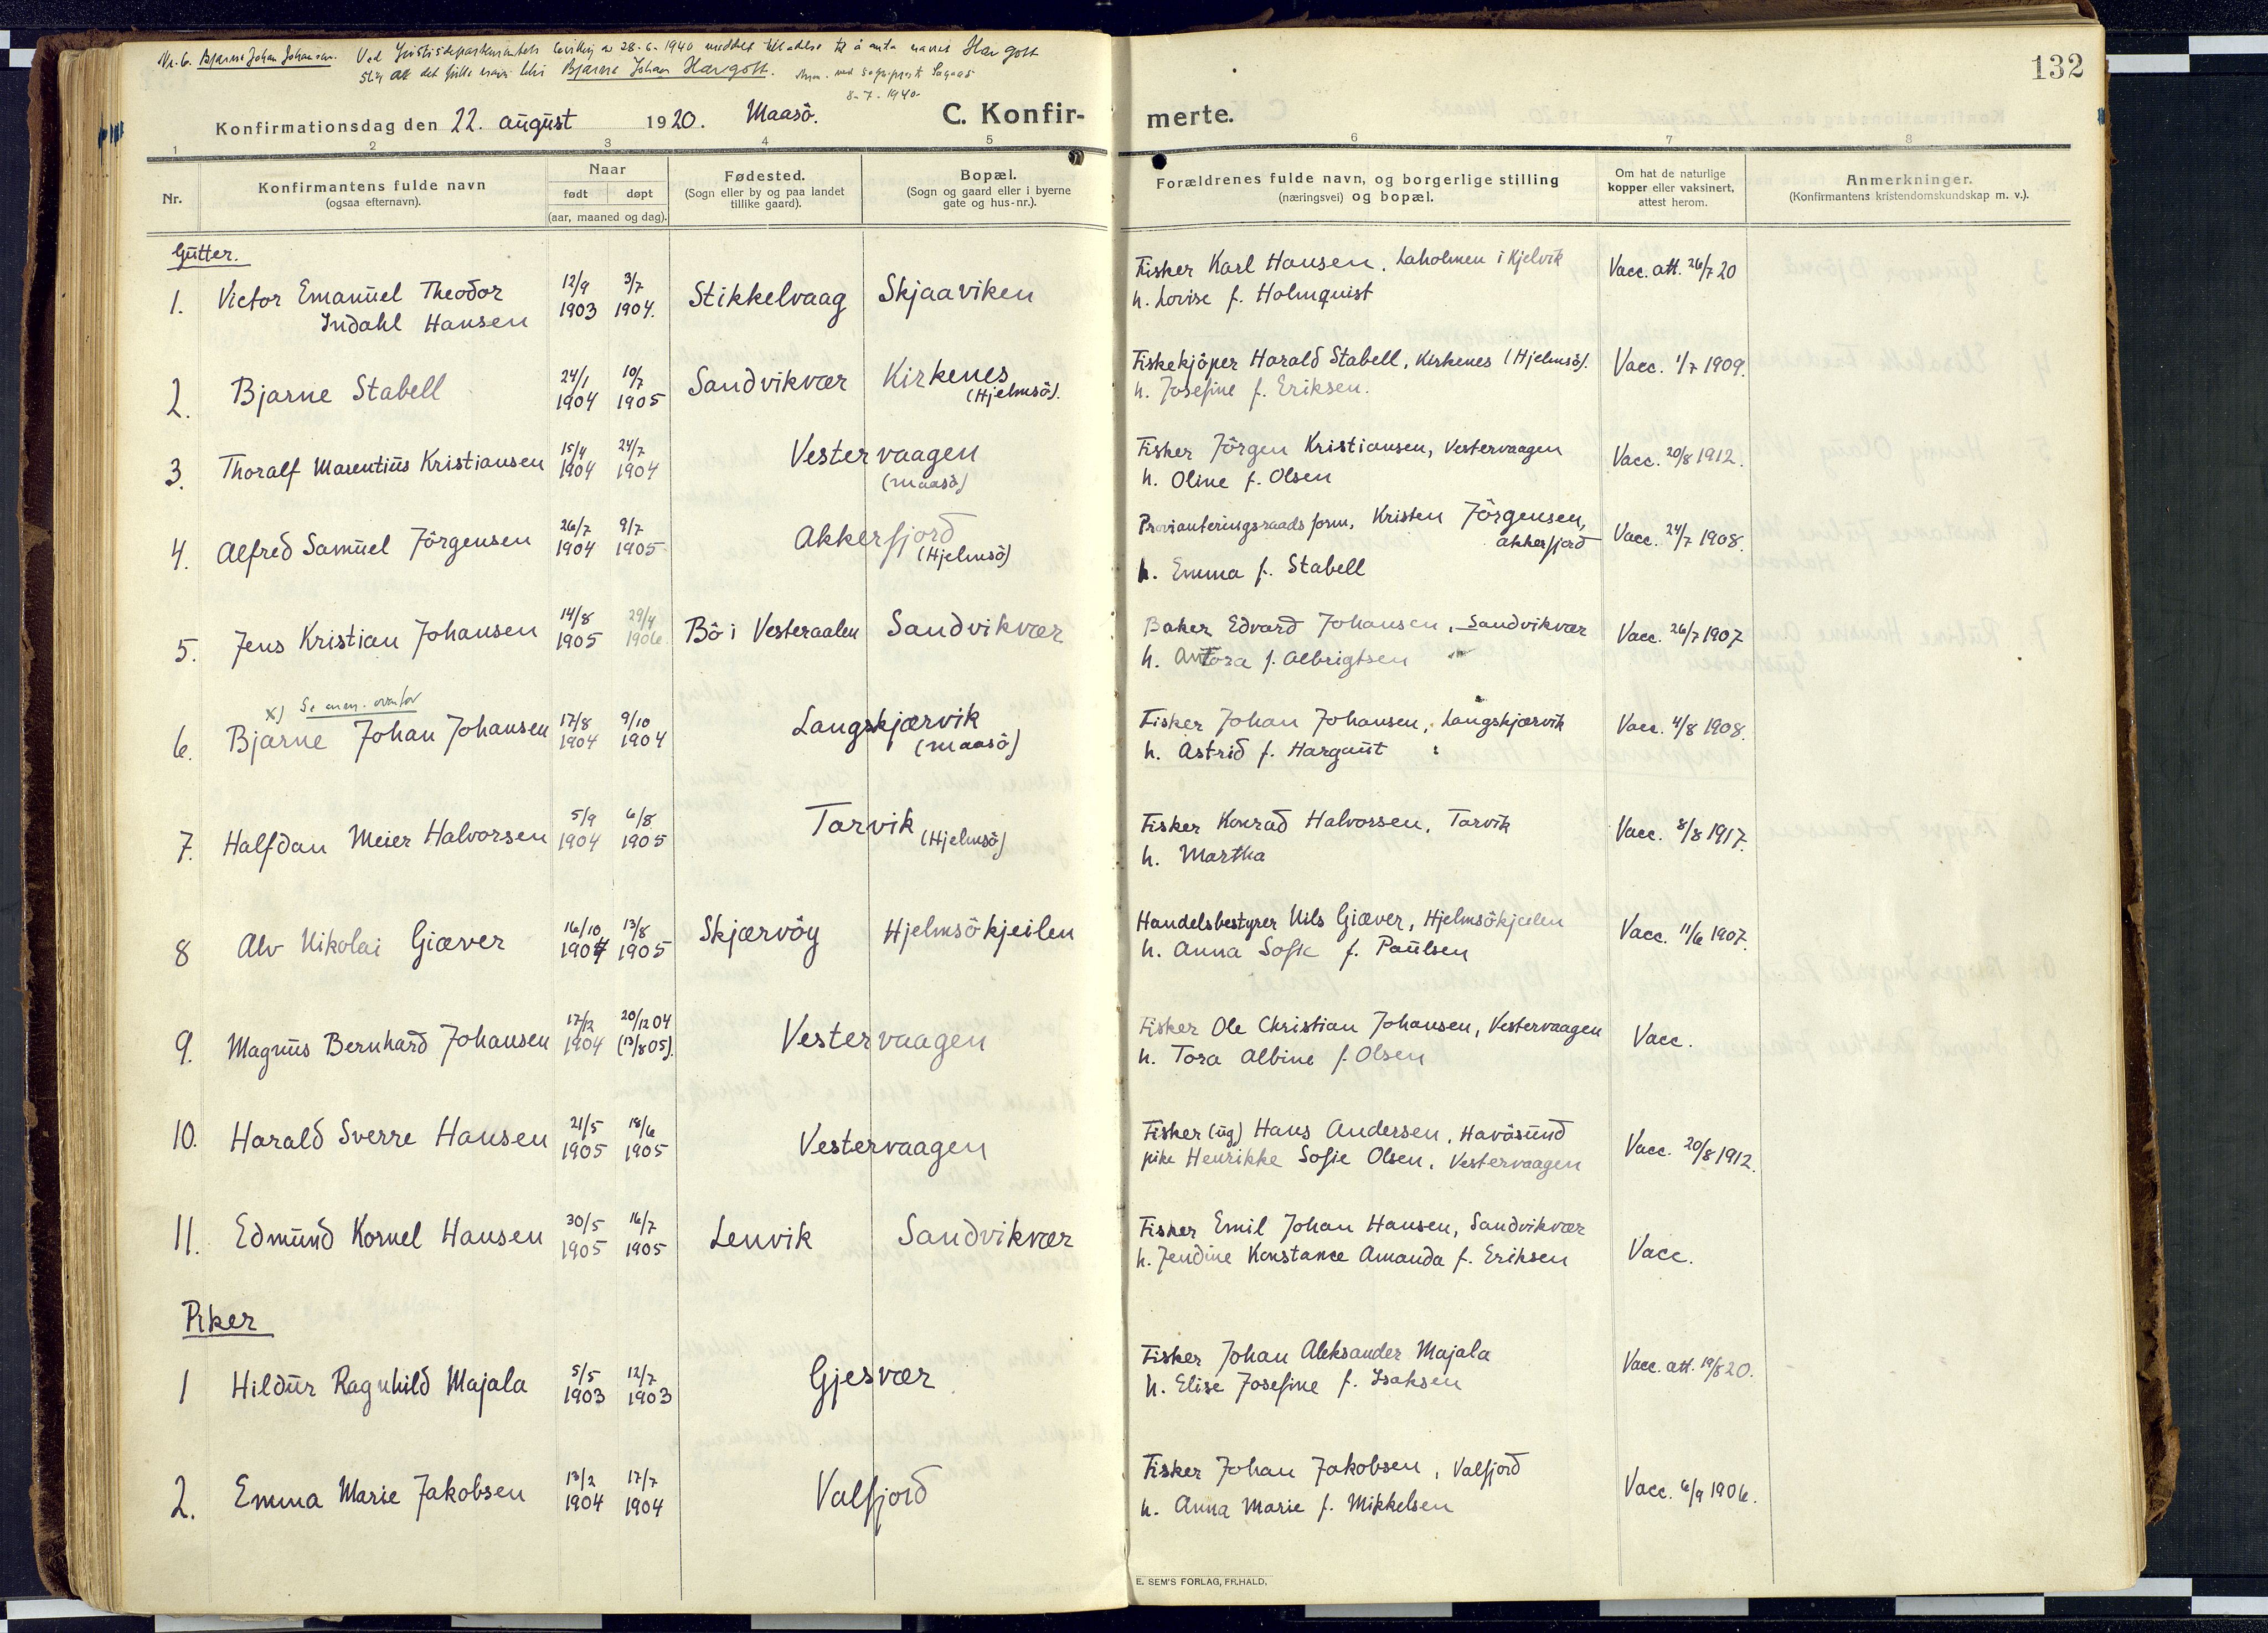 132
Nr. 6. Bjarne Johan Johansen. Ved Justisdepartementets bevilling av 28-6-1940 meddelt tillatelse til å anta navnet Hargott
slik at det fulle navn blir Bjarne Johan Hargott.
8-7-1940
Konfirmationsdag den 22. august 1920. Maasö. C. Konfir-
merte.
1 2 3 4 5 6 7 8
Nr.
Konfirmantens fulde navn
(ogsaa efternavn).
Naar
født døpt
(aar, maaned og dag).
Fødested.
(Sogn eller by og paa landet
tillike gaard).
Bopæl.
(Sogn og gaard eller i byerne
gate og hus-nr.).
Forældrenes fulde navn, og borgerlige stilling
(næringsvei) og bopæl.
Om hat de naturlige
kopper eller vaksinert,
attest herom.
Anmerkninger.
(Konfirmantens kristendomskundskap m. v.).
Gutter.
1. Victor Emanuel Theodor 12/9 3/7 Stikkelvaag Skjaaviken Fisker Karl Hansen, Laholmen i Kjelvik Vacc. att. 26/7 20
Indahl Hansen 1903 1904. h. Lovise f. Holmquist
2. Bjarne Stabell 24/1 10/7 Sandvikvær Kirkenes Fiskekjöper Harald Stabell, Kirkenes (Hjelmsö). Vacc. 1/7 1909.
1904 1905 (Hjelmsö). h. Josefine f. Eriksen.
3. Thoralf Marentius Kristiansen 15/4 24/7 Vestervaagen Fisker Jörgen Kristiansen, Vestervaagen Vacc. 20/8 1912.
1904 1904 (Maasö) h. Oline f. Olsen
4. Alfred Samuel Jörgensen 26/7 9/7 Akkerfjord Provianteringsraads form. Kristen Jörgensen, Vacc. 24/7 1908.
1904 1905 (Hjelmsö) Akkerfjord
h. Emma f. Stabell
5. Jens Kristian Johansen 14/8 29/4 Bö i Vesteraalen Sandvikvær Baker Edvard Johansen, Sandvikvær Vacc. 26/7 1907
1905 1906. h. Antora f. Albrigtsen
x) Se anm. ovenfor
6. Bjarne Johan Johansen 17/8 9/10 Langskjærvik Fisker Johan Johansen, Langskjærvik Vacc. 4/8 1908.
1904 1904 (Maasö) h. Astrid f. Hargaut
7. Halfdan Meier Halvorsen 5/9 6/8 Tarvik Fisker Konrad Halvorsen, Tarvik Vacc. 8/8 1917.
1904 1905 (Hjelmsö) h. Martha
8 Alv Nikolai Giæver 16/10 13/8 Skjærvöy Hjelmsökjeilen Handelsbestyrer Nils Giæver, Hjelmsökjeilen Vacc. 11/6 1907.
1904 1905 h. Anna Sofie f. Paulsen
9. Magnus Bernhard Johansen 17/12 20/12 04 Vestervaagen Fisker Ole Christian Johansen, Vestervaagen Vacc.
1904 (13/8 05). h. Tora Albine f. Olsen
10. Harald Sverre Hansen 21/5 18/6 Vestervaagen Fisker (ug) Hans Andersen, Havösund Vacc. 20/8 1912.
1905 1905 pike Henrikke Sofie Olsen, Vestervaagen
11. Edmund Kornel Hansen 30/5 16/7 Lenvik Sandvikvær Fisker Emil Johan Hansen, Sandvikvær Vacc.
1905 1905 h. Jendine Konstance Amanda f. Eriksen
Piker
1 Hildur Ragnhild Majala 5/5 12/7 Gjesvær Fisker Johan Aleksander Majala Vacc. att. 19/8 20.
1903 1903 h. Elise Josefine f. Isaksen
2. Emma Marie Jakobsen 13/2 17/7 Valfjord Fisker Johan Jakobsen, Valfjord Vacc. 6/9 1906.
1904 1904 h. Anna Marie f. Mikkelsen
E. SEM'S FORLAG, FR.HALD.